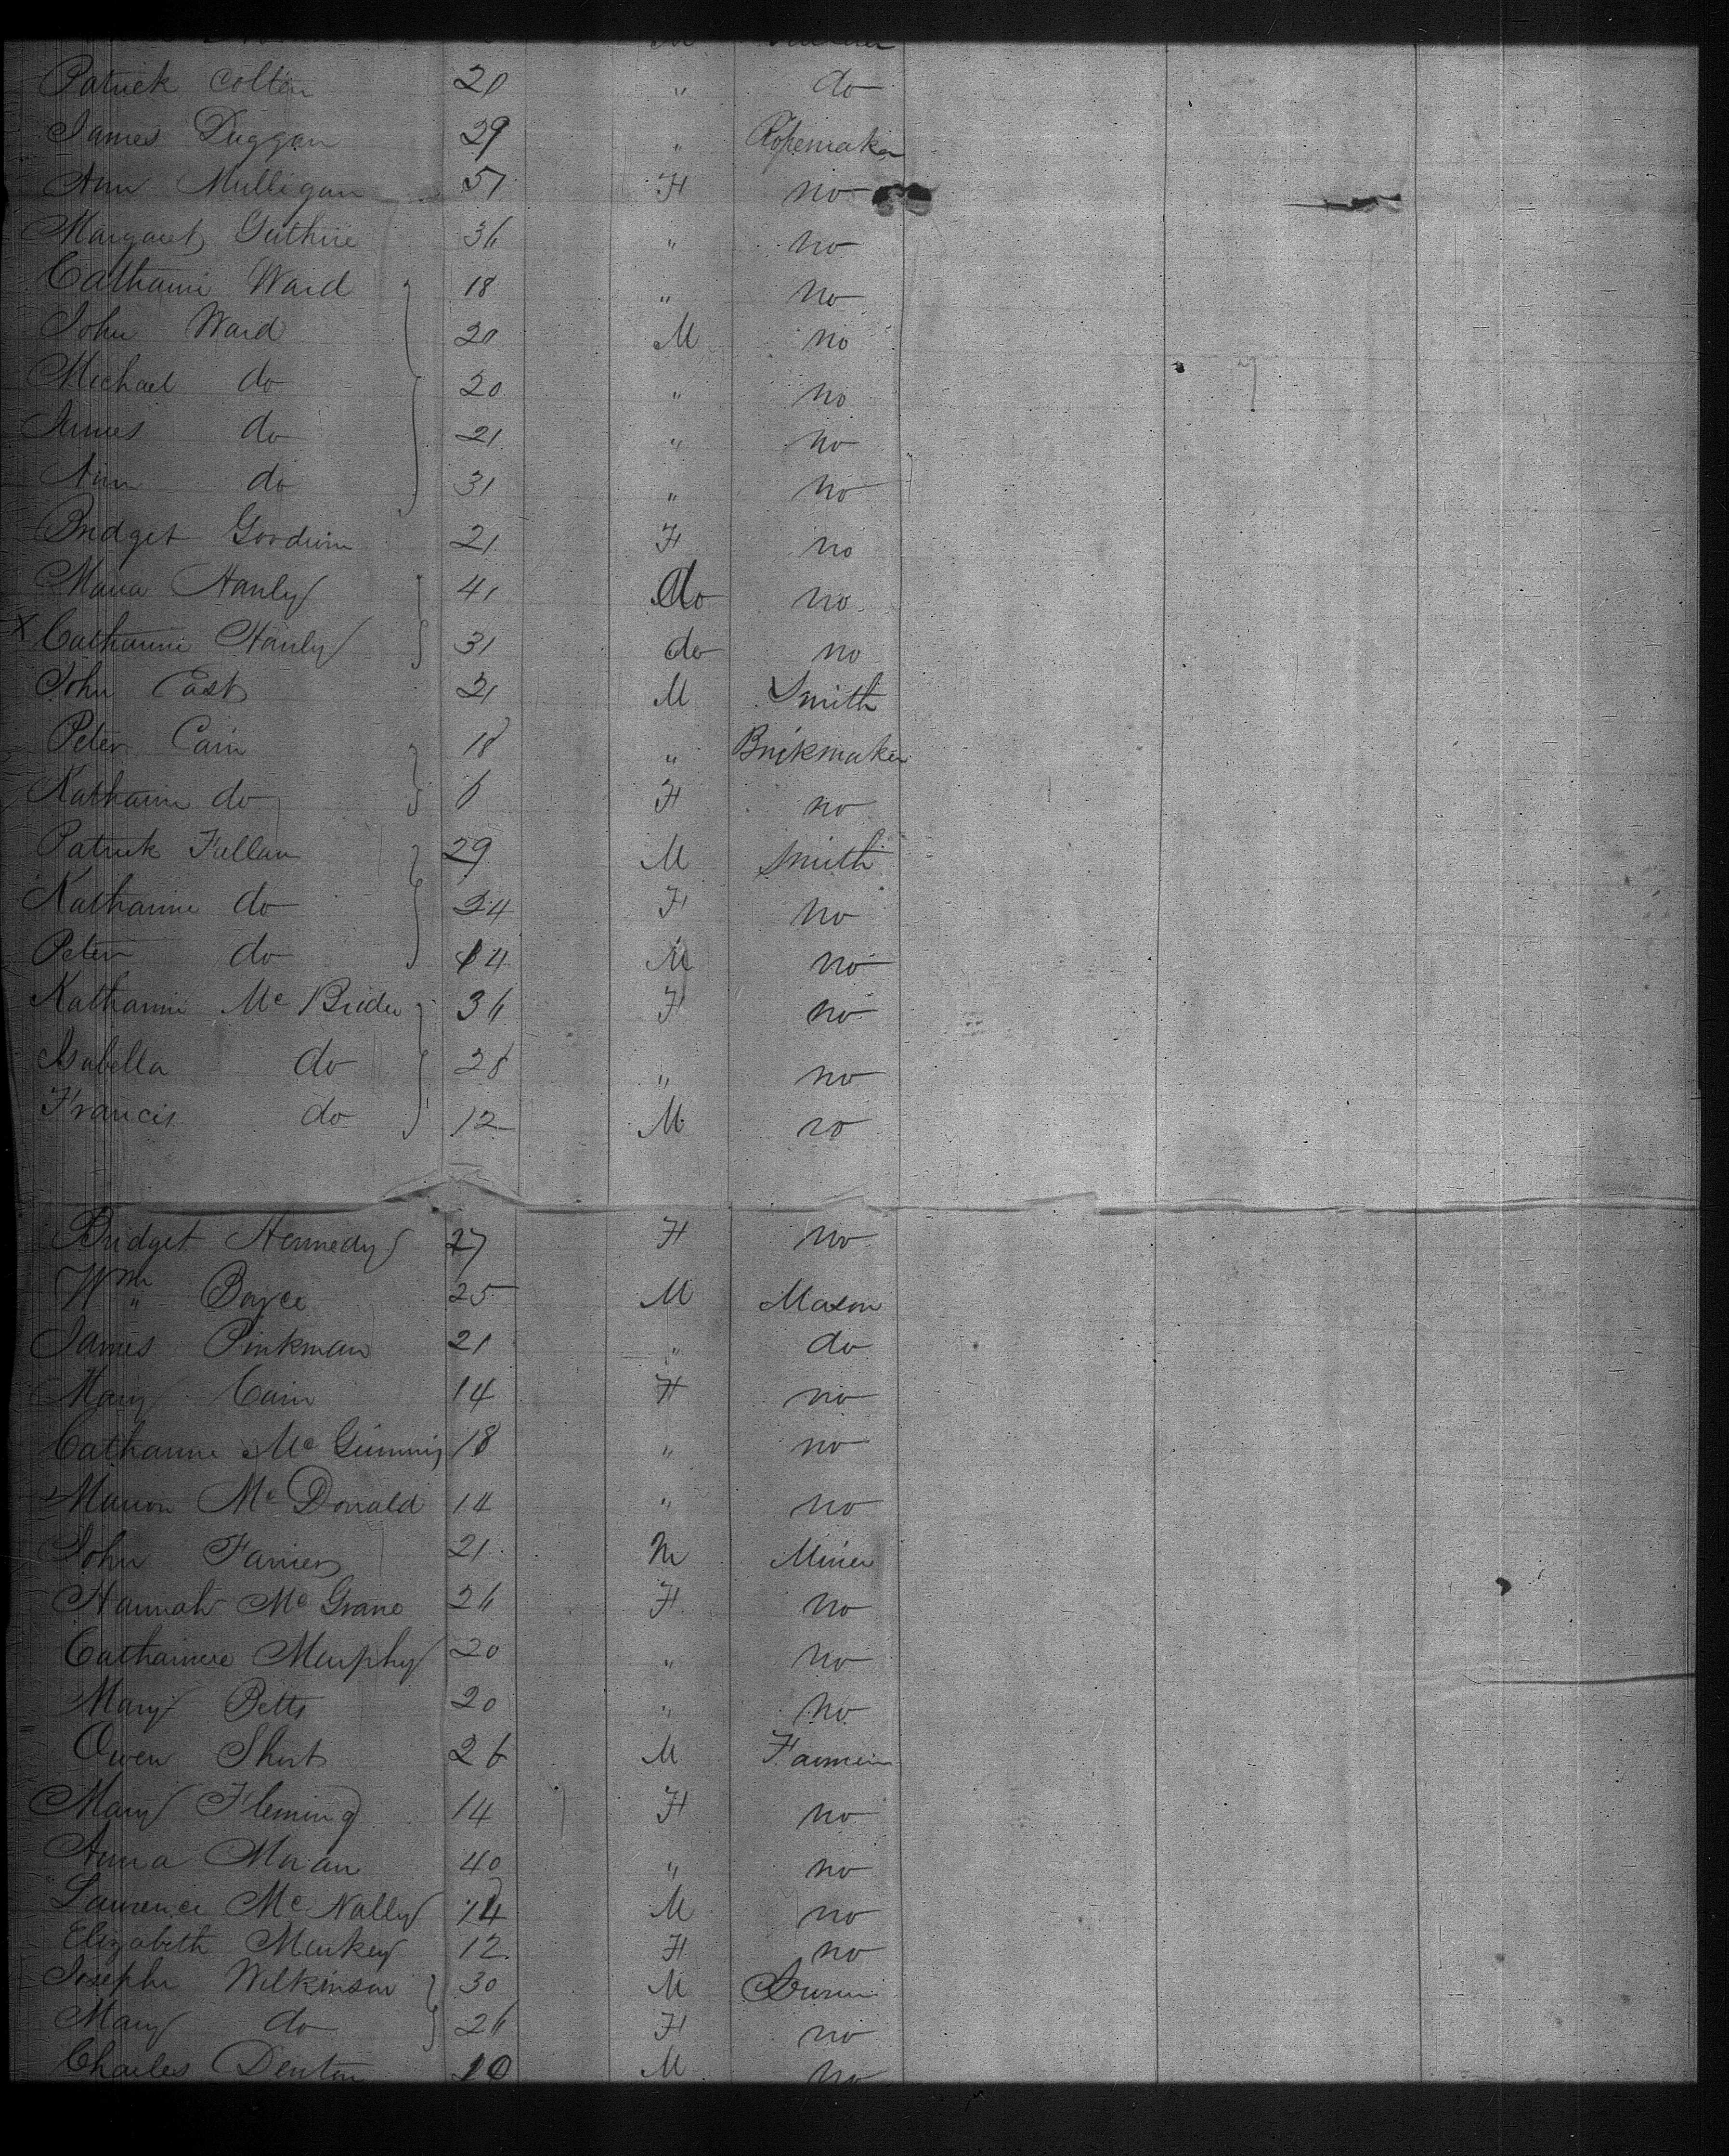 Patrick Colton 20 " do
James Duggan 29 " Ropemaker
Ann Mulligan 51 F no
Margaret Guthrie 36 " no
Catharine Ward 18 " no
John Ward 20 M no
Michael do 20 " no
James do 21 " no
Ann do 31 " no
Bridget Goodwin 21 F no
Maria Hanly 41 do no
X Catharine Hanly 31 do no
John East 21 M Smith
Peter Cain 18 " Brikmaker
Katharine do 6 F no
Patrick Fullan 29 M Smith
Katharine do 24 F no
Peter do 14 M no
Katharine Mc Bride 36 F no
Isabella do 28 " no
Francis do 12 M no
Bridget Kennedy 27 F no
Wm Boyce 25 M Mason
James Pinkman 21 " do
Mary Cain 14 F no
Catharine Mc Ginnis 18 " no
Marion Mc Donald 14 " no
John 21 M Miner
Hannah Mc Grane 26 F no
Catharine Murphy 20 " no
Mary Betts 20 " no
Owen Short 26 M Farmer
Mary Fleming 14 F no
Anna Moran 40 " no
Laurence Mc Nally 14 M no
Elizabeth Markey 12 F no
Joseph Wilkinson 30 M
Mary do 26 F no
Charles Denton 10 M no